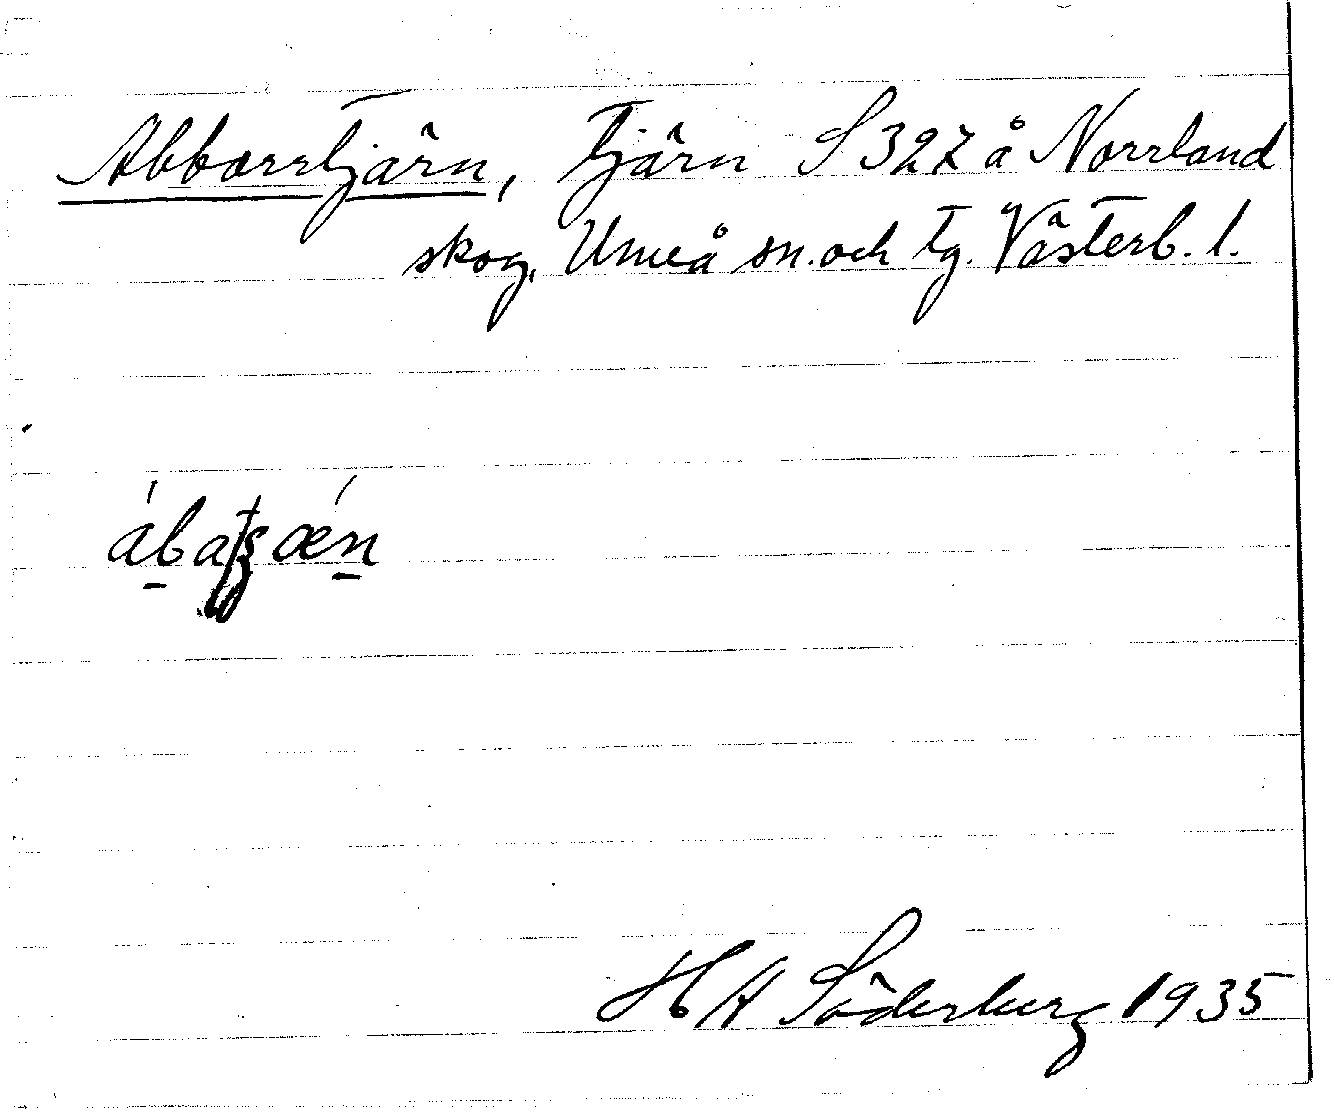 Abborrtjärn, Tjärn S 327 å Norrland
skog, Umeå sn. och tg. Västerb. l.
H A Söderberg 1935